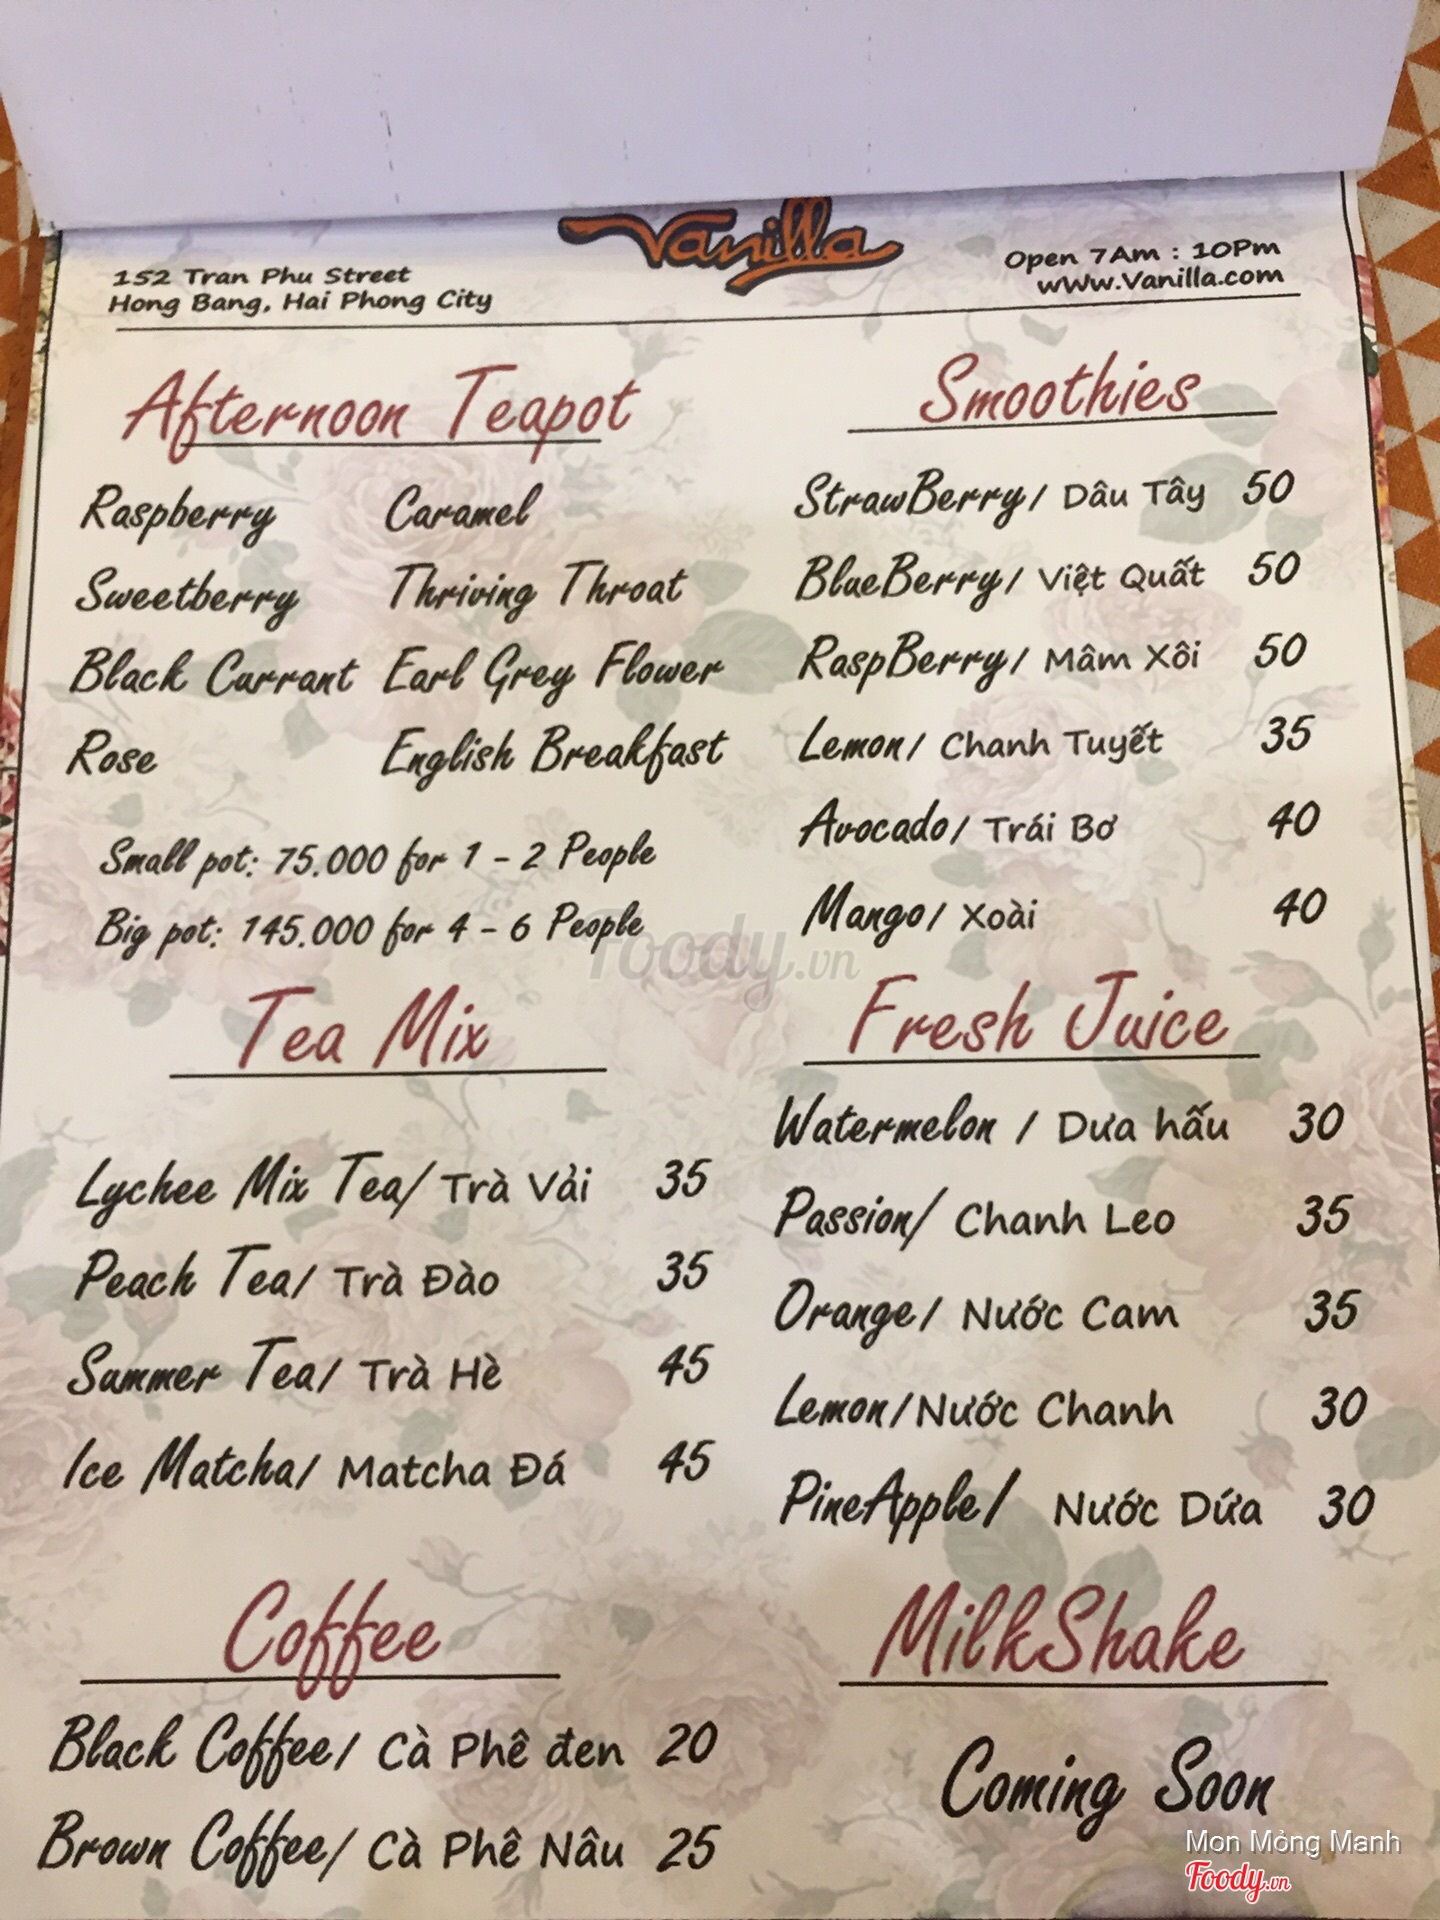 Vanilla
152 Tran Phu Street
Hong Bang, Hai Phong City
Open 7Am : 10Pm
wWw.Vanilla.com
Afternoon Teapot
Raspberry Caramel
Sweetberry Thriving Throat
Black Currant Earl Grey Flower
Rose English Breakfast
Small pot: 75.000 for 1 - 2 People
Big pot: 145.000 for 4 - 6 People
Tea Mix
Lychee Mix Tea/ Trà Vải 35
Peach Tea/ Trà Đào 35
Summer Tea/ Trà Hè 45
Ice Matcha/ Matcha Đá 45
Coffee
Black Coffee/ Cà Phê đen 20
Brown Coffee/ Cà Phê Nâu 25
Smoothies
StrawBerry/ Dâu Tây 50
BlueBerry/ Việt Quất 50
RaspBerry/ Mâm Xôi 50
Lemon/ Chanh Tuyết 35
Avocado/ Trái Bơ 40
Mango/ Xoài 40
Fresh Juice
Watermelon / Dưa hấu 30
Passion/ Chanh Leo 35
Orange/ Nước Cam 35
Lemon/Nước Chanh 30
PineApple/ Nước Dứa 30
MilkShake
Coming Soon
Foody.vn
Mon Mỏng Manh
Foody.vn